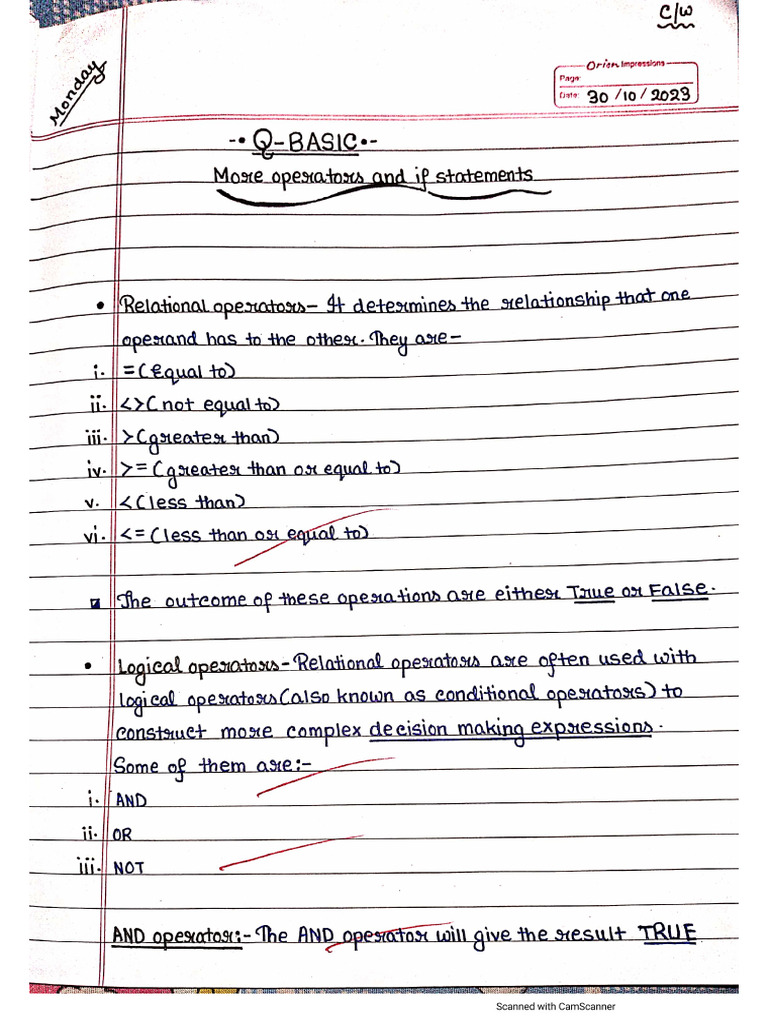 C/W
Monday
Orion Impressions
Page:
Date: 30/10/2023
-•Q-BASIC•-
More operators and if statements
• Relational operators- It determines the relationship that one
operand has to the other. They are-
i. =(Equal to)
ii. <>(not equal to)
iii. >(greater than)
iv. >=(greater than or equal to)
v. <(less than)
vi. <=(less than or equal to)
The outcome of these operations are either True or False.
• Logical operators-Relational operators are often used with
logical operators(also known as conditional operators) to
construct more complex decision making expressions.
Some of them are:-
i. AND
ii. OR
iii. NOT
AND operator:- The AND operator will give the result TRUE
Scanned with CamScanner